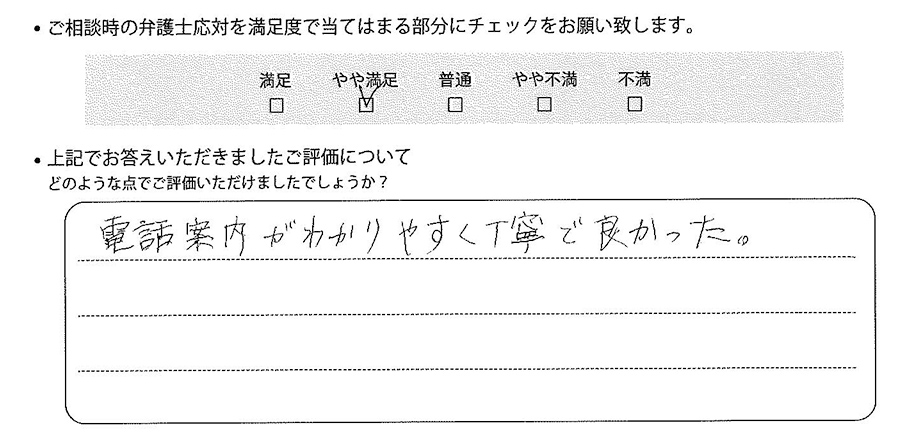 ・ご相談時の弁護士応対を満足度で当てはまる部分にチェックをお願い致します。
満足 やや満足 普通 やや不満 不満
□ ☑ □ □ □
・上記でお答えいただきましたご評価について
どのような点でご評価いただけましたでしょうか？
電話案内がわかりやすく丁寧で良かった。